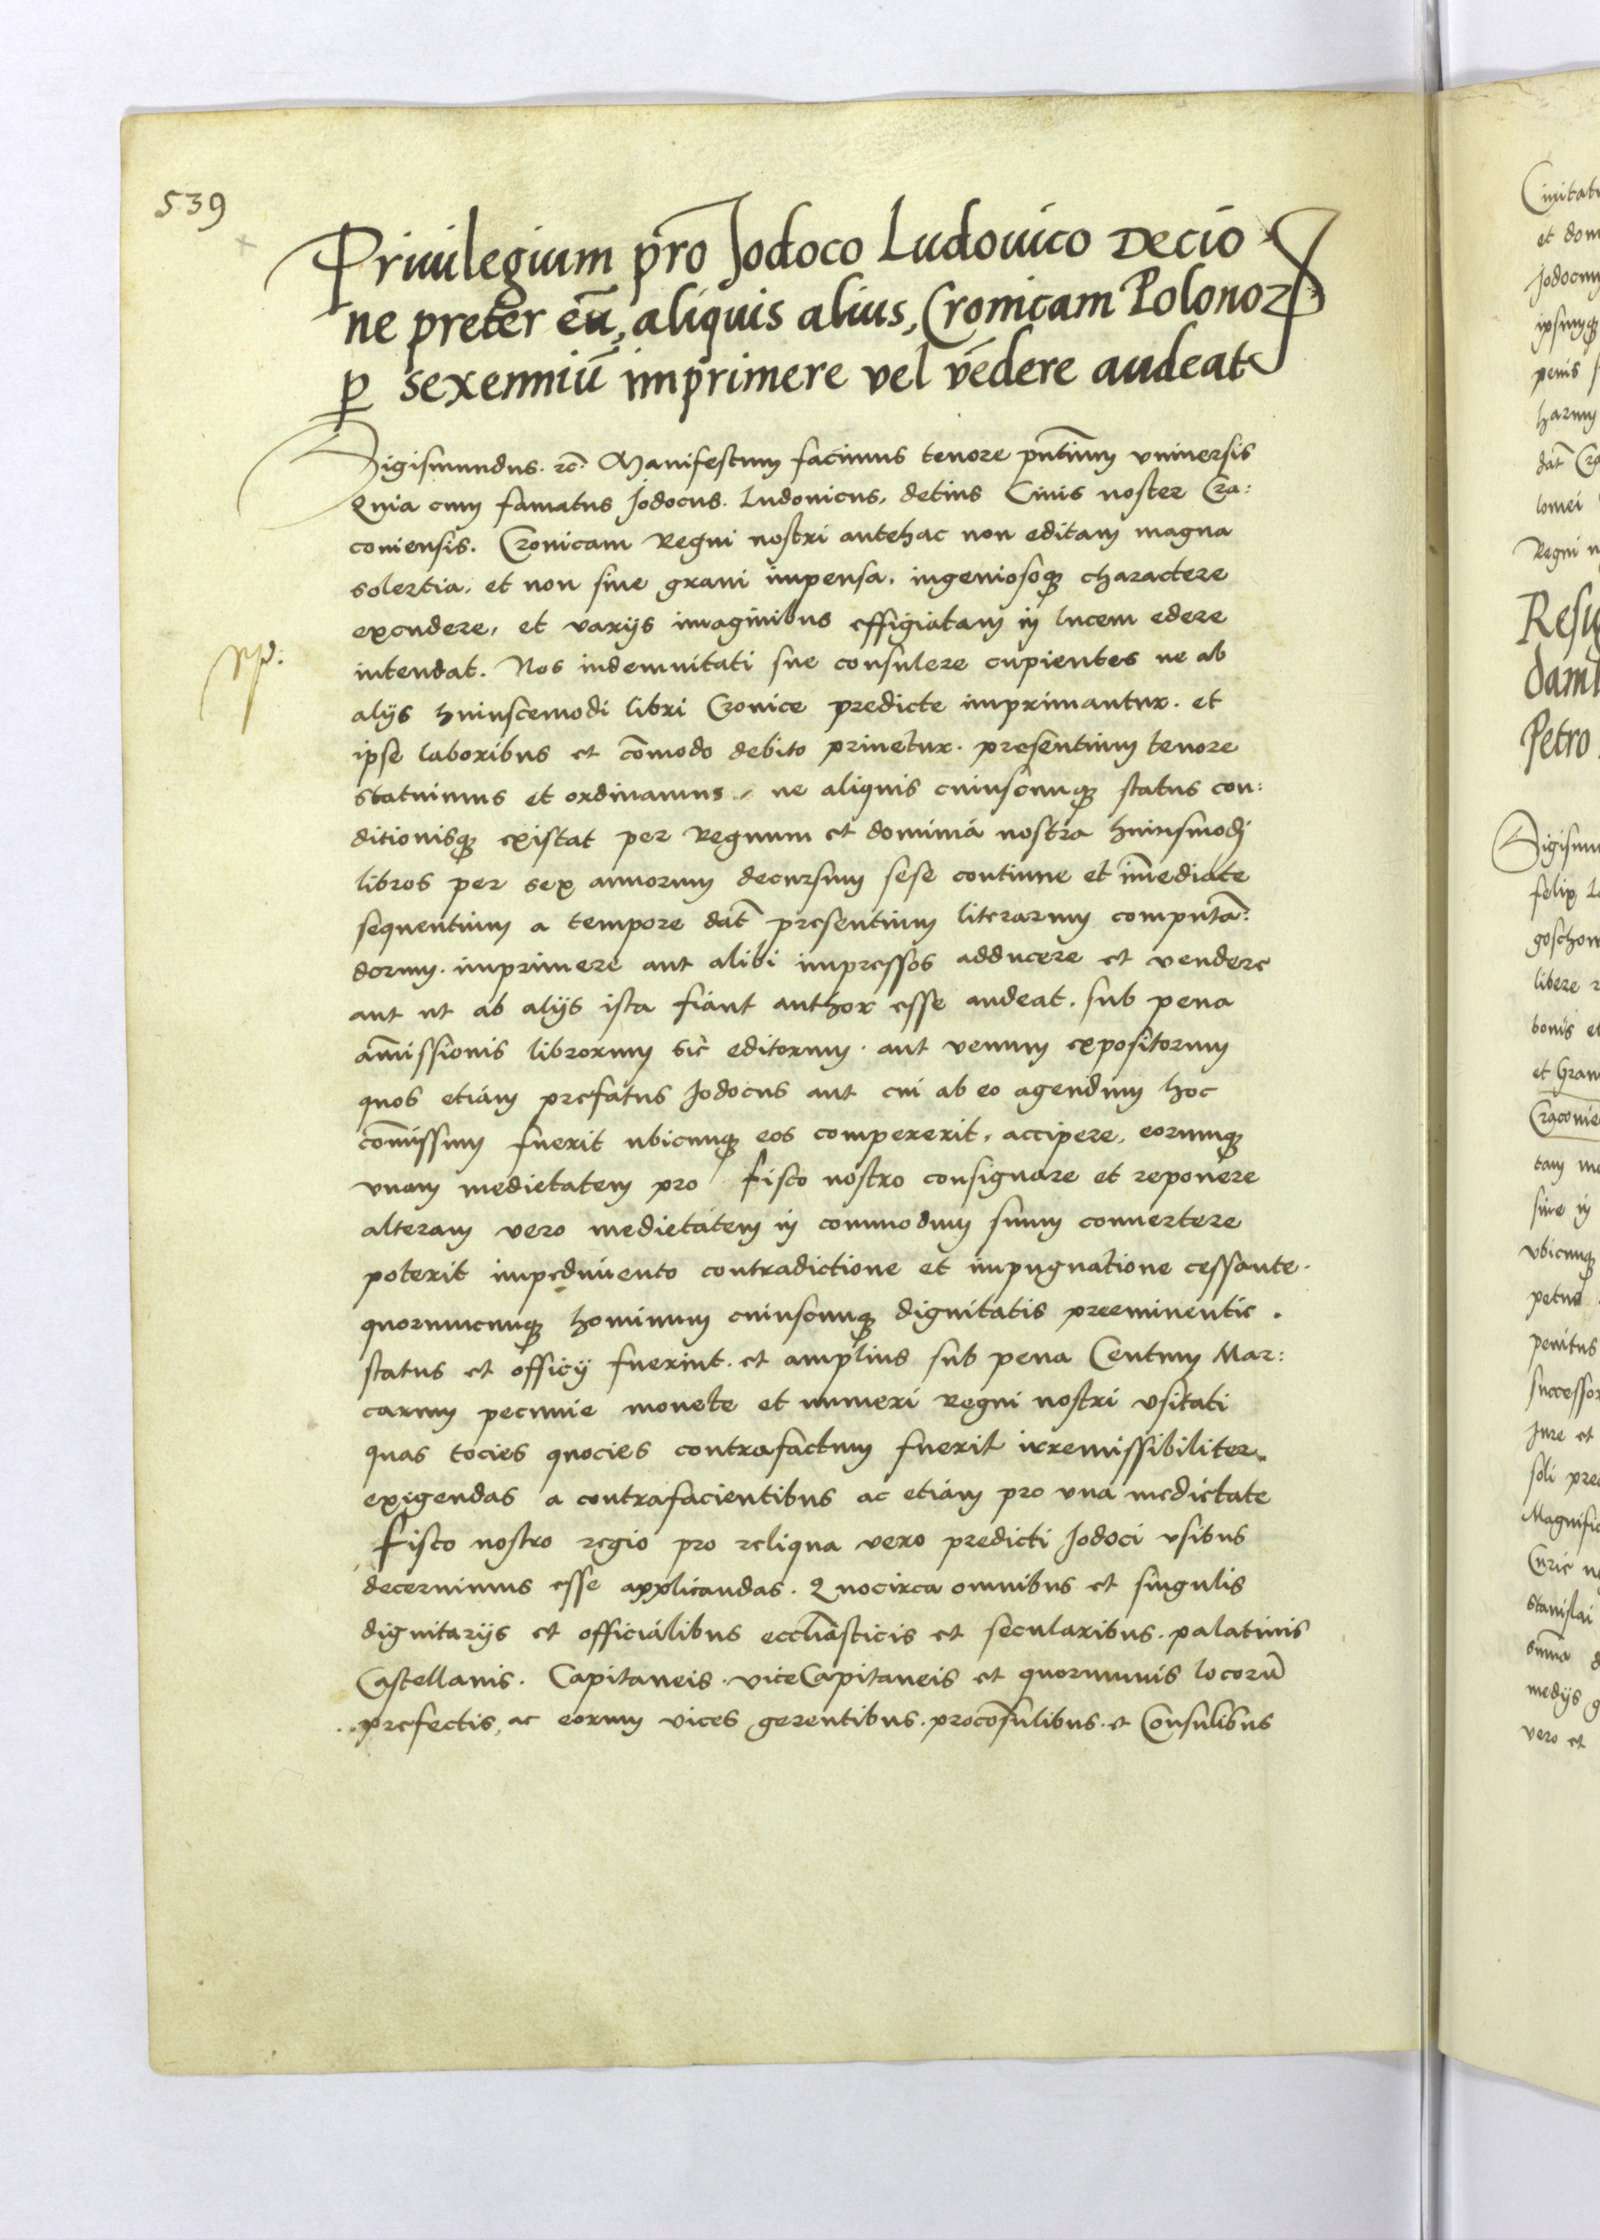 539
Priuilegium pro Jodoco Ludouico Decio
ne preter eū, aliquis alius, Cronicam Polonoꝝ
ꝑ sexenniū imprimere vel vēdere audeat
Sigismundus. ꝛc̄. Manifestum facimus tenore pn̄tium vniuersis
Quia cum famatus Jodocus. Ludouicus. detius Ciuis noster Cra:
couiensis. Cronicam Regni nostri antehac non editam magna
solertia. et non sine graui impensa. ingeniosoqꝫ charactere
excudere, et varijs imaginibus effigiatam in lucem edere
intendat. Nos indemnitati sue consulere cupientes ne ab
alijs huiuscemodi libri Cronice predicte imprimantur. et
ipse laboribus et cōmodo debito priuetur. presentium tenore
statuimus et ordinamus. ne aliquis cuiuscunqꝫ status con:
ditionisqꝫ existat per Regnum et dominia nostra huiusmodj
libros per sex annorum decursum sese continue et īmediate
sequentium a tempore dat̄ presentium literarum computā:
dorum. imprimere aut alibi impressos adducere et vendere
aut ut ab alijs ista fiant author esse audeat. sub pena
amīssionis librorum sic editorum. aut venum expositorum
quos etiam prefatus Jodocus aut cui ab eo agendum hoc
com̄issum fuerit ubicunqꝫ eos compererit, accipere, eorumqꝫ
vnam medietatem pro fisco nostro consignare et reponere
alteram vero medietatem in commodum suum conuertere
poterit impedimento contradictione et impugnatione cessante.
quorumcunqꝫ hominum cuiuscunqꝫ dignitatis preeminentie.
status et officij fuerint. et amplius sub pena Centum Mar:
carum pecunie monete et numeri Regni nostri vsitati
quas tocies quocies contrafactum fuerit irremissibiliter.
exigendas a contrafacientibus ac etiam pro vna medietate
fisco nostro regio pro reliqua vero predicti Jodoci vsibus
decernimus esse applicandas. Quocirca omnibus et singulis
dignitarijs et officialibus eccliāsticis et secularibus. palatinis
Castellanis. Capitaneis. viceCapitaneis et quorumuis locorū
prefectis, ac eorum vices gerentibus. procōsulibus. et Consulibus
Ciuitatu
et dom
Jodocum
ipsumqꝫ
penis
harum
dat̄ Cra
lomei
Regni n
Resig
dam
Petro
Sigismu
felix
goschow
libere
bonis et
et Gran
Cracouie
tam me
siue in
vbicunqꝫ
petuo
penitus
successor
Jure et
soli pre
Magnific
Curie n
stanislai
om̄ia
medijs g
vero et